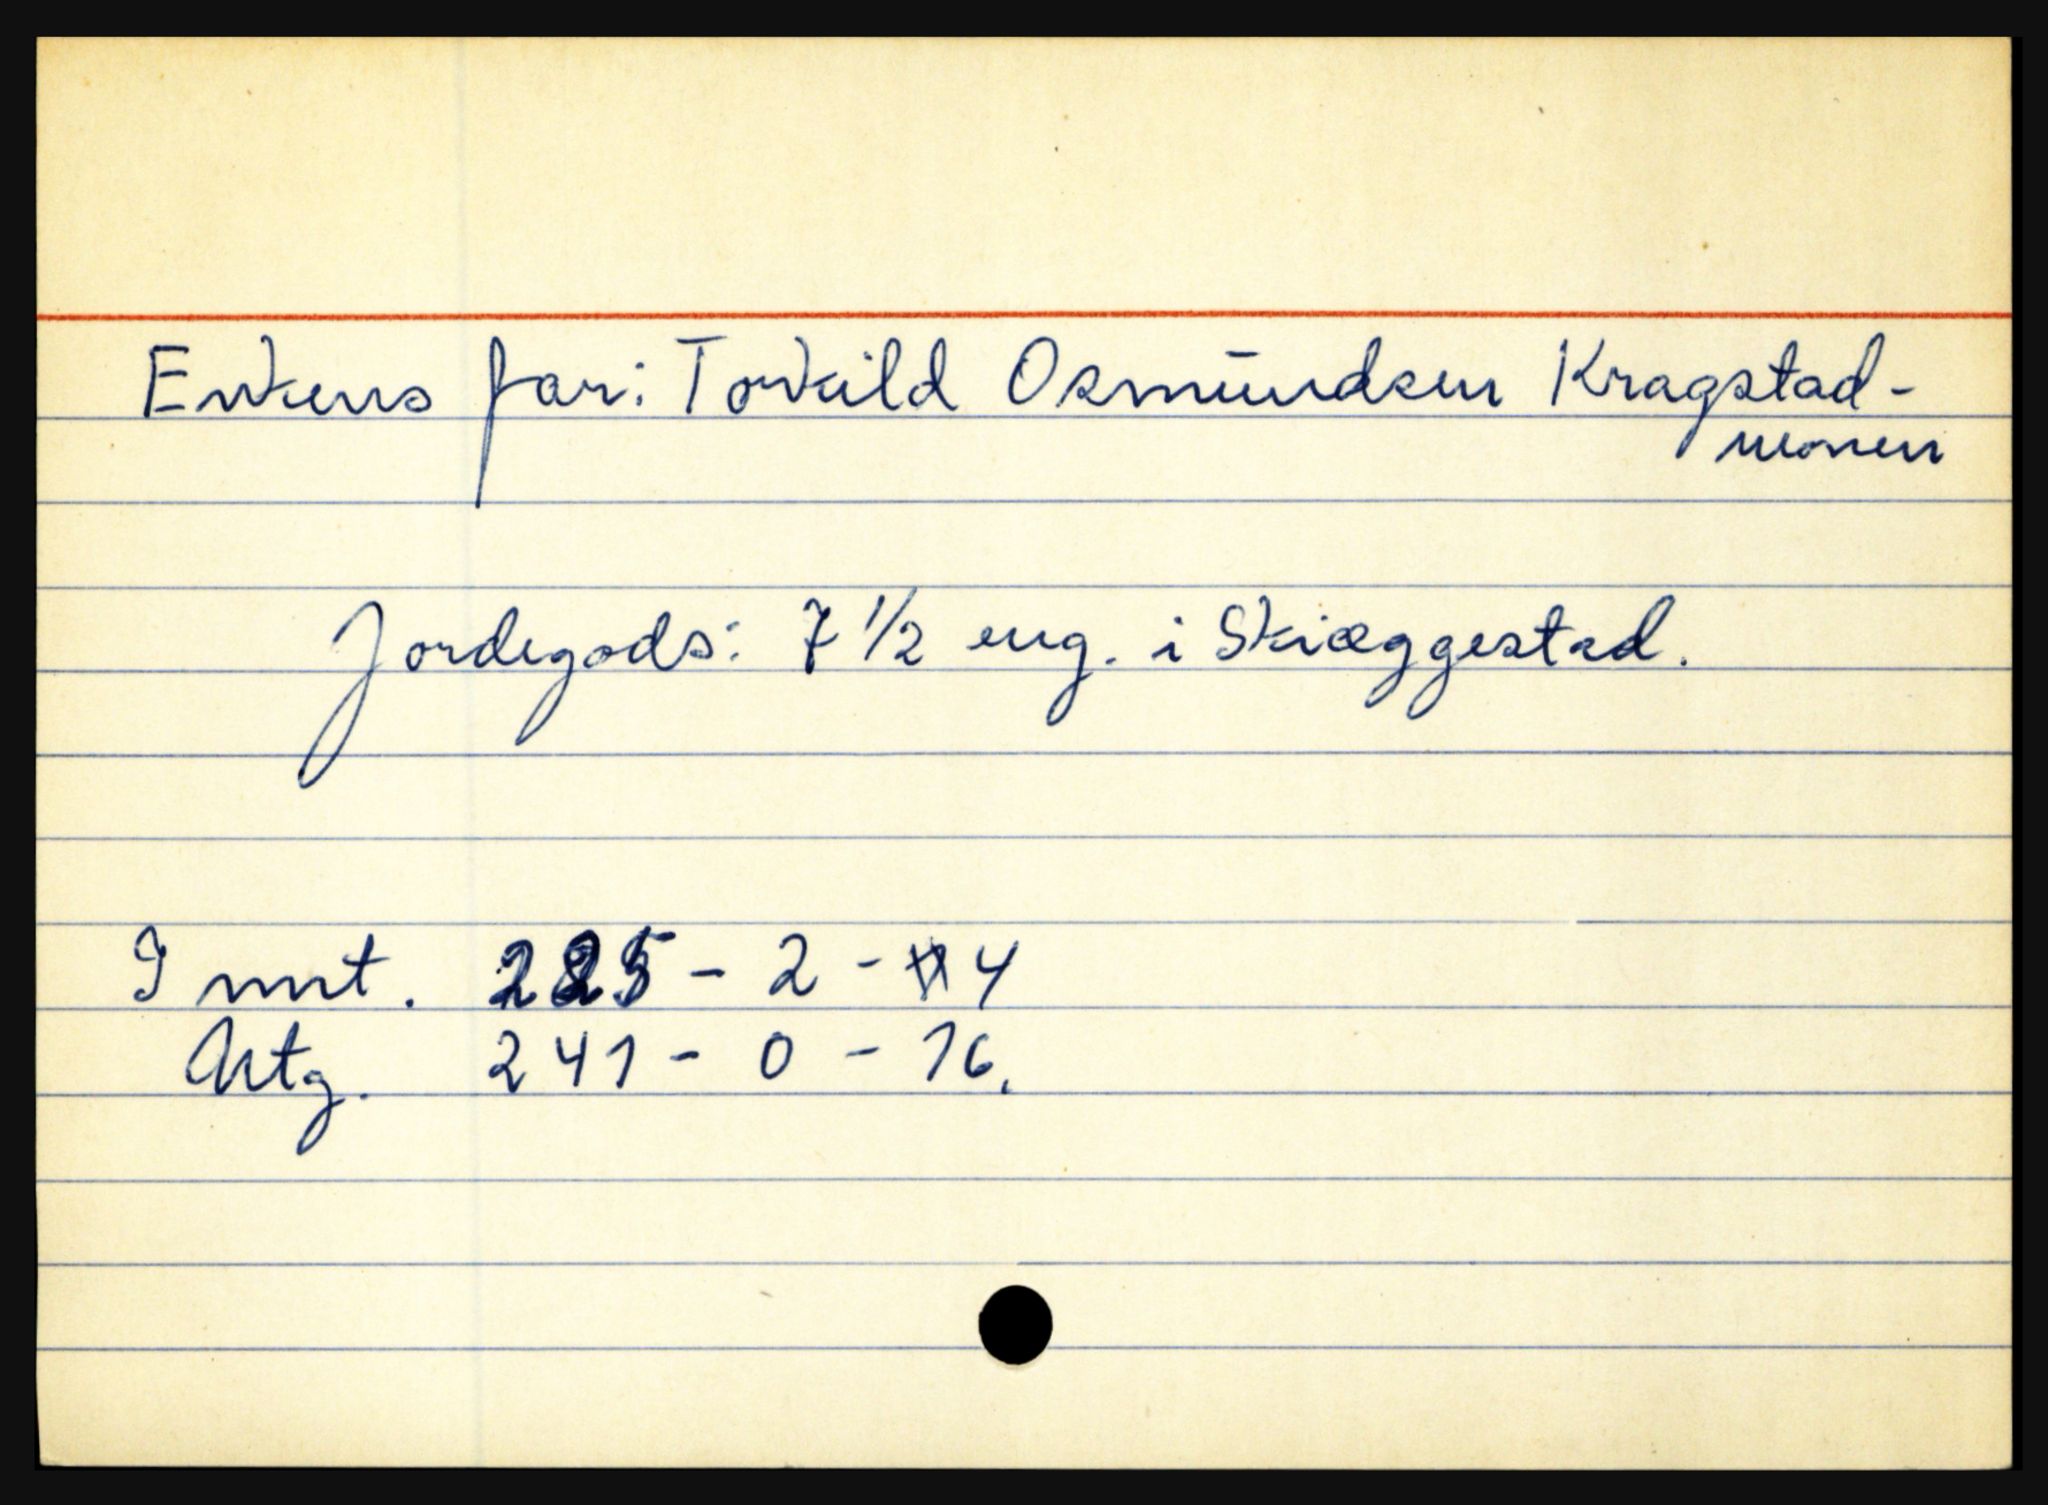 Enkens far: Torkild Osmundsen Kragstad-
monen
Jordegods: 7 1/2 eng. i Skiæggestad.
Innt. 225 - 2 - 4
Utg. 241 - 0 - 16.